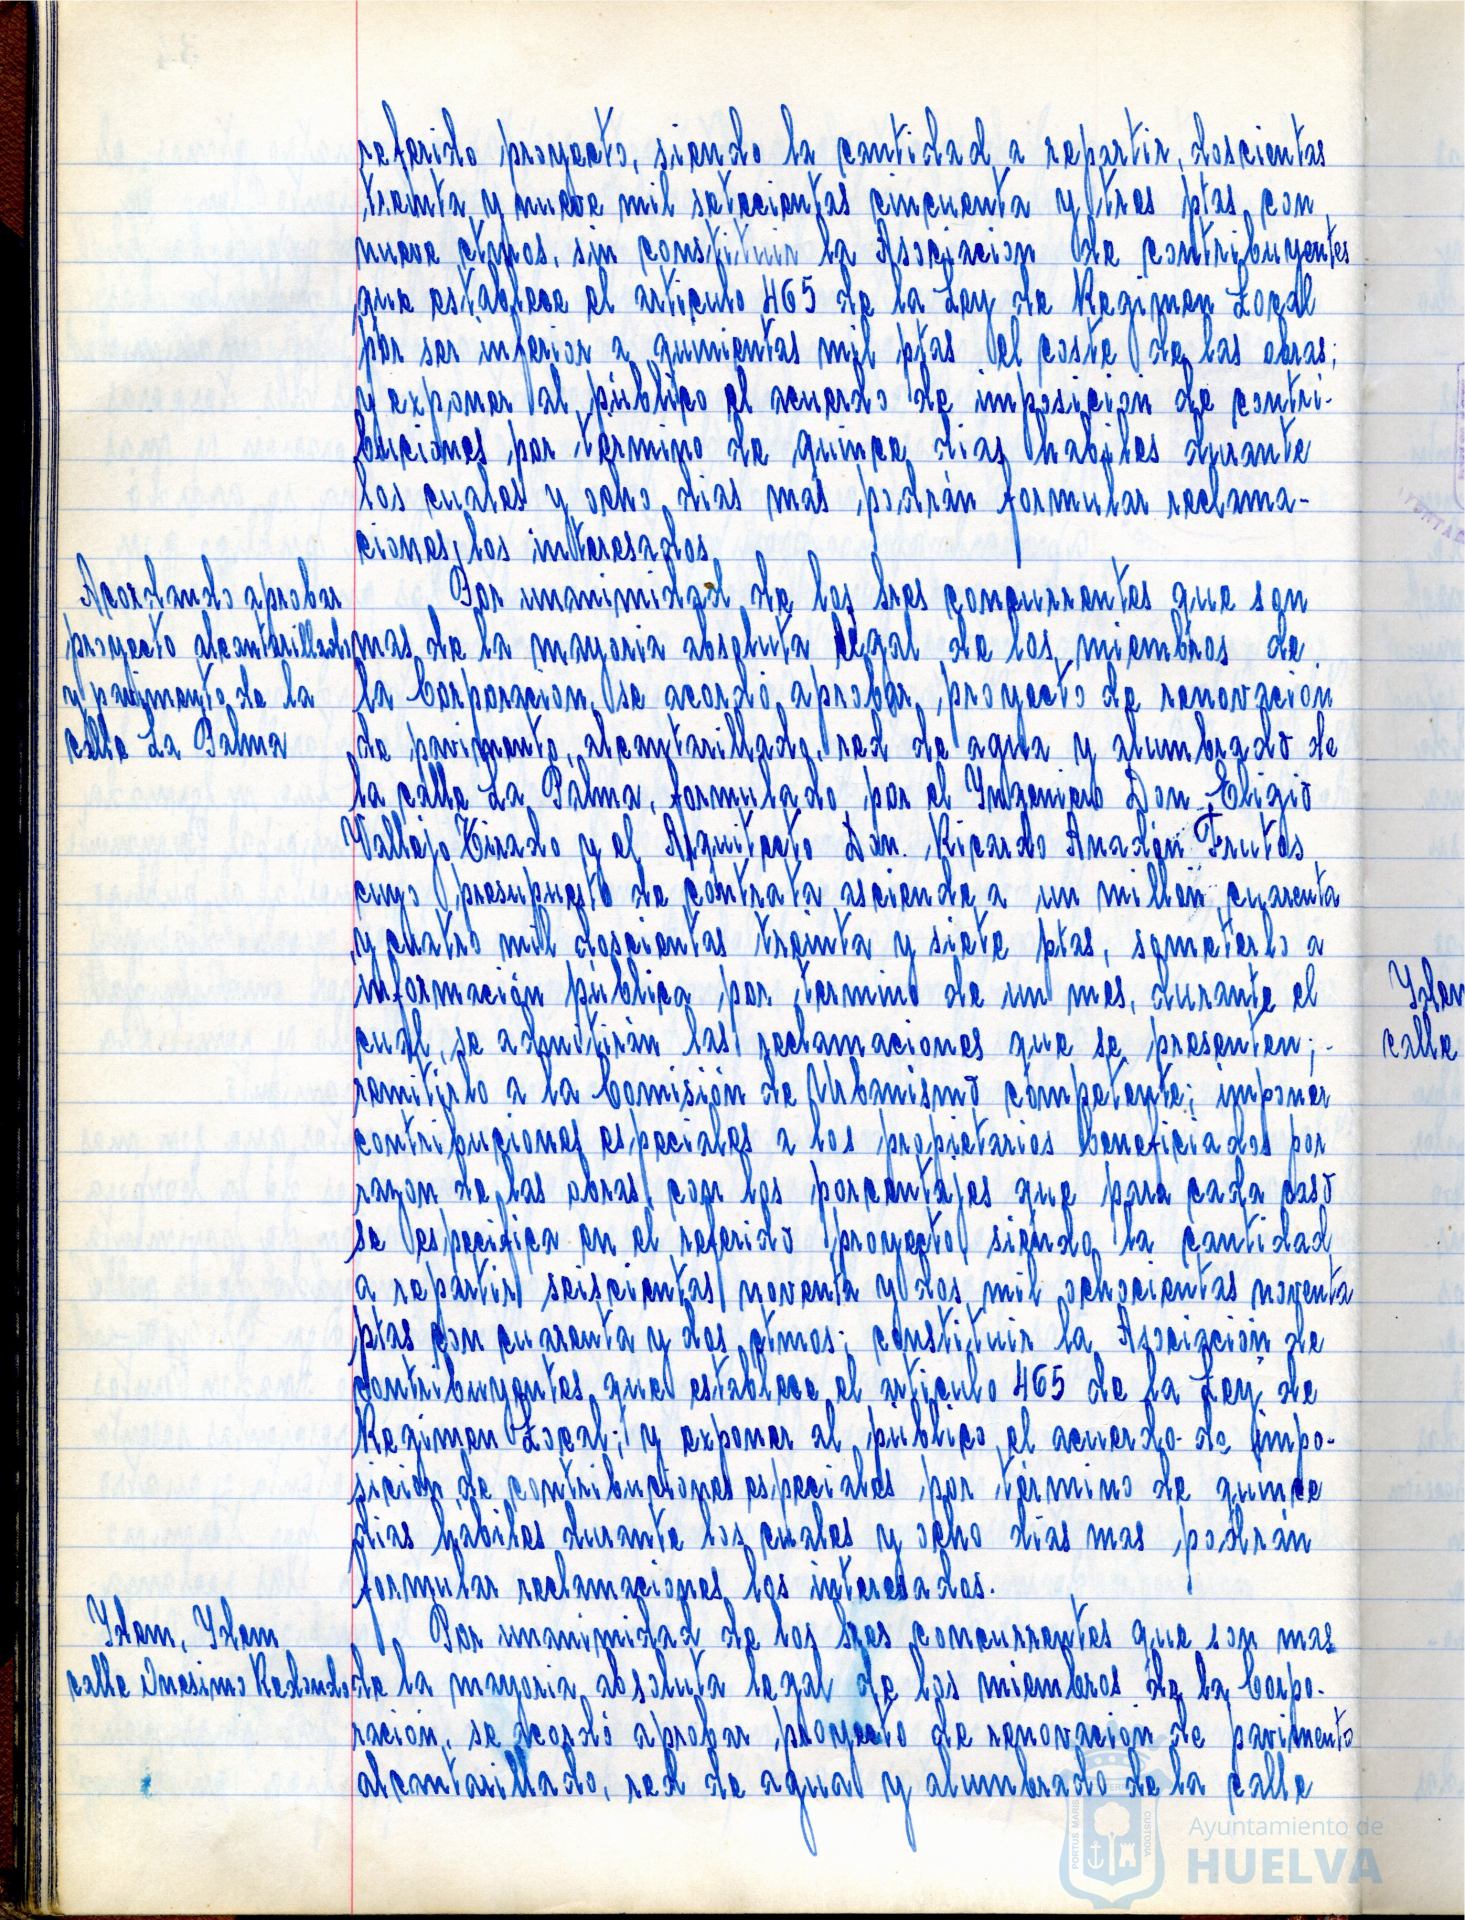 referido proyecto, siendo la cantidad a repartir, doscientas
treinta y nueve mil setecientas cincuenta y tres ptas, con
nueve ctmos, sin constituir la Asociacion de contribuyentes
que establece el articulo 465 de la Ley de Regimen Local
por ser inferior a quinientas mil ptas el coste de las obras;
y exponer al público el acuerdo de imposición de contri-
buciones por termino de quince dias habiles durante
los cuales y ocho dias más, podrán formular reclama-
ciones, los interesados.
Acordando aprobar
proyecto alcantarillado
y pavimento de la
calle La Palma
Por unanimidad de los Sres concurrentes que son
mas de la mayoria absoluta legal de los miembros de
la Corporacion, se acordó aprobar, proyecto de renovación
de pavimento, alcantarillado, red de agua y alumbrado de
la calle La Palma, formulado por el Yngeniero Don Eligio
Vallejo Tirado y el Arquitecto Don. Ricardo Anadón Frutos
cuyo presupuesto de contrata asciende a un millon cuarenta
y cuatro mil doscientas treinta y siete ptas, someterlo a
información pública por termino de un mes, durante el
cual, se admitirán las reclamaciones que se presenten;-
remitirlo a la Comisión de Urbanismo competente; imponer
contribuciones especiales a los propietarios beneficiados por
razon de las obras con los porcentajes que para cada caso
se especifica en el referido proyecto, siendo la cantidad
a repartir seiscientas noventa y dos mil ochocientas noventa
ptas con cuarenta y dos ctmos; constituir la Asociación de
contribuyentes que establece el articulo 465 de la Ley de
Regimen Local; y exponer al público el acuerdo de impo-
sición de contribuciones especiales por término de quince
dias habiles durante los cuales y ocho dias mas podrán
formular reclamaciones los interesados.
Ydem, Ydem
calle Onesimo Redondo
Por unanimidad de los Sres concurrentes que son mas
de la mayoria absoluta legal de los miembros de la Corpo-
ración, se acordó aprobar proyecto de renovacion de pavimento
alcantarillado, red de agua y alumbrado de la calle
Ydem
calle
PORTUS MARIS
CUSTODIA
Ayuntamiento de
HUELVA